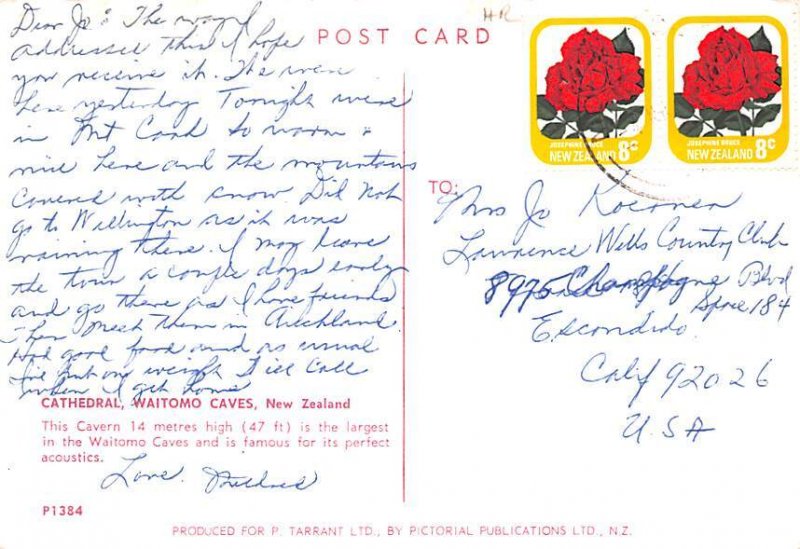 Dear Jo: The way I
addressed this I hope
you receive it. The were
here yesterday Tonight were
in Mt Cook so warm &
nice here and the mountains
covered with snow Did Not
go to Wellington as it was
raining there. I may leave
the tour a couple days early
and go there as I have friends
then meet them in Auckland
Had good food and as usual
I've put on weight I ill call
when I get home
CATHEDRAL, WAITOMO CAVES, New Zealand
This Cavern 14 metres high (47 ft) is the largest
in the Waitomo Caves and is famous for its perfect
acoustics.
Love.
P1384
POST CARD
HR
JOSEPHINE BRUCE
NEW ZEALAND 8c
JOSEPHINE BRUCE
NEW ZEALAND 8c
TO:
Mrs Jo
Lawrence Wells Country Club
8975 Champagne Blvd
Space 184
Escondido
Calif 92026
U.S.A
PRODUCED FOR P. TARRANT LTD., BY PICTORIAL PUBLICATIONS LTD., N.Z.